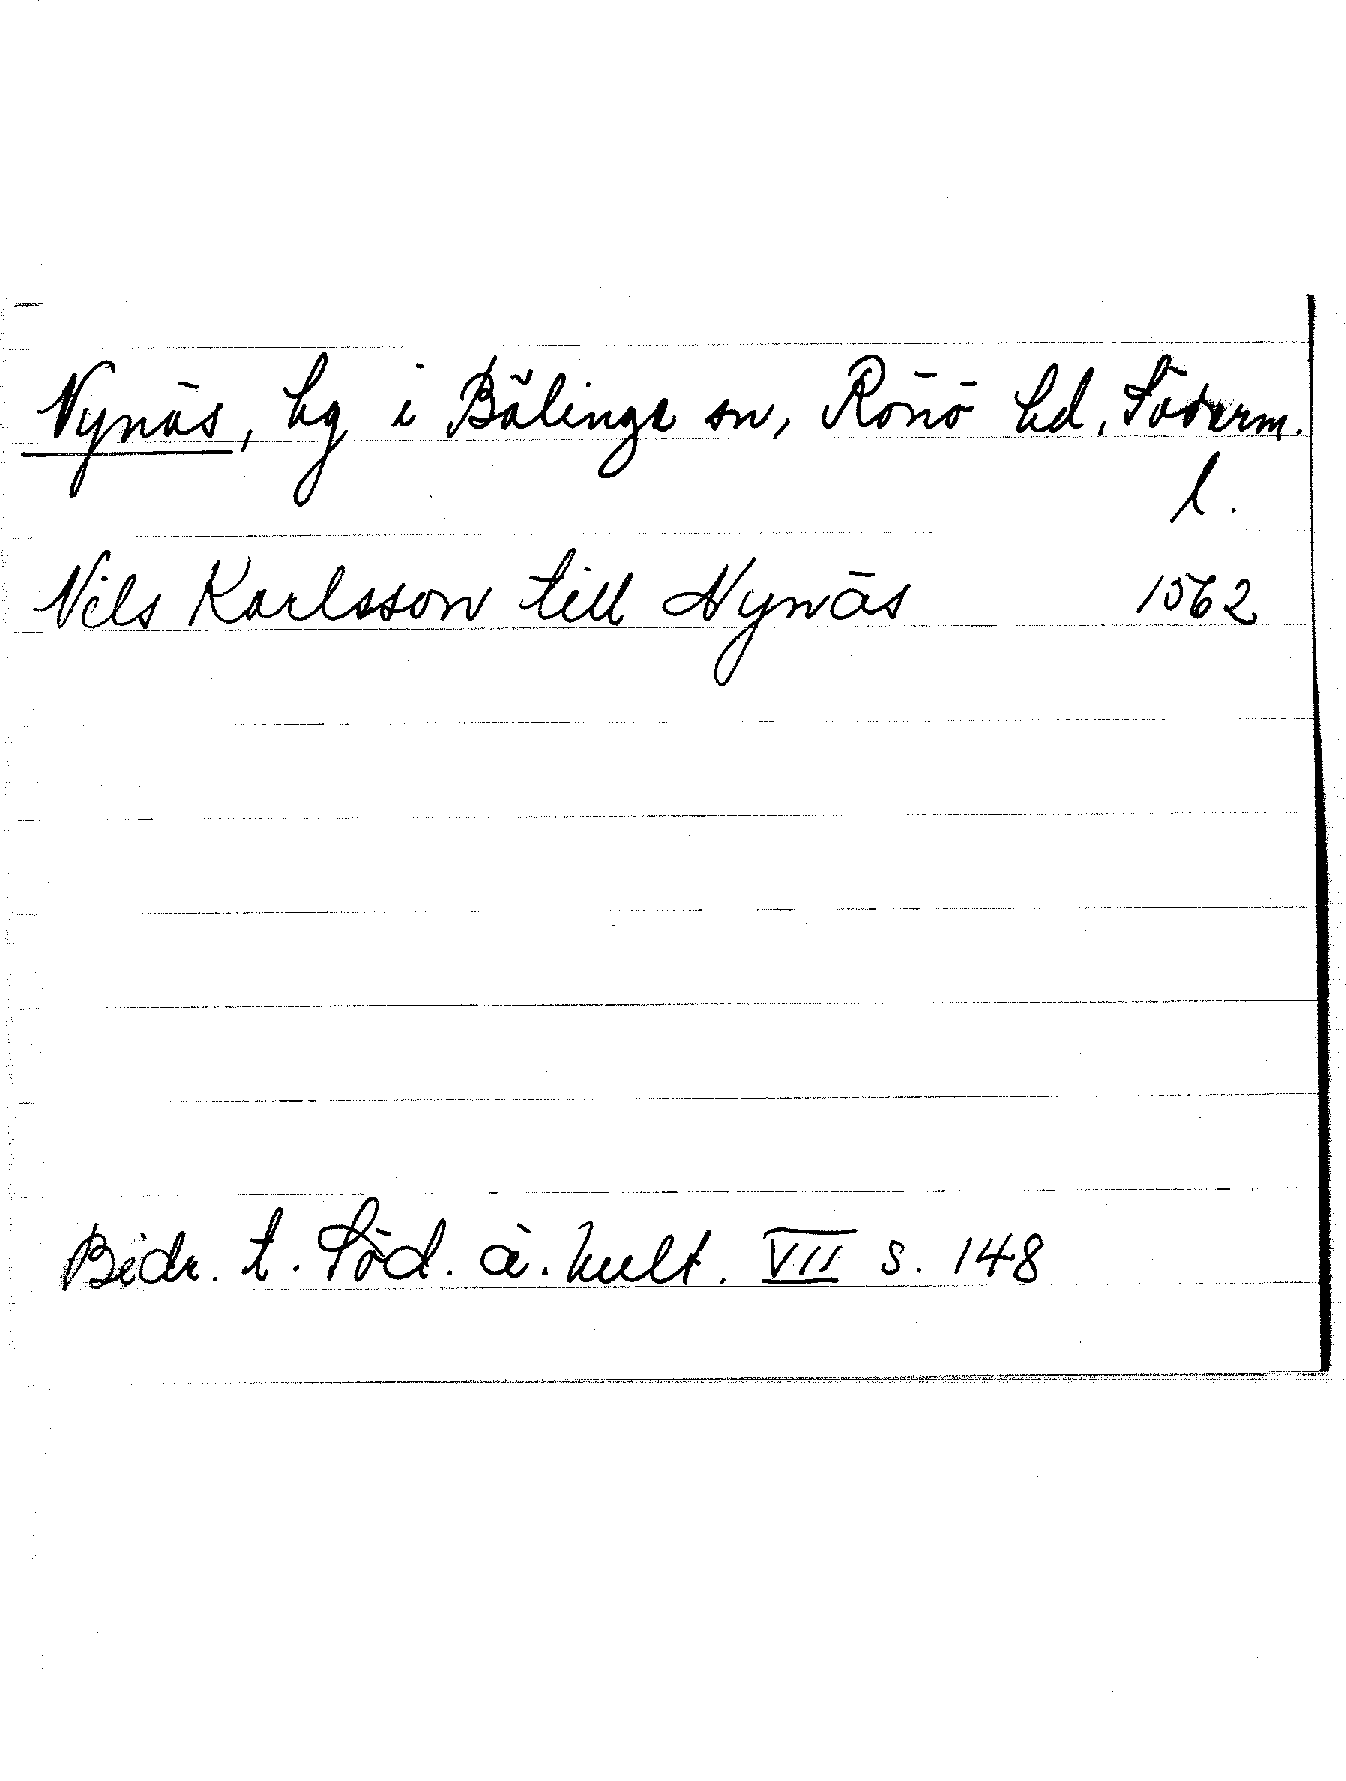 Nynäs, hg i Bälinge sn, Rönö hd, Söderm.
l.
Nils Karlsson till Nynäs 1562
Bidr. t. Söd. ä. kult. VII s. 148